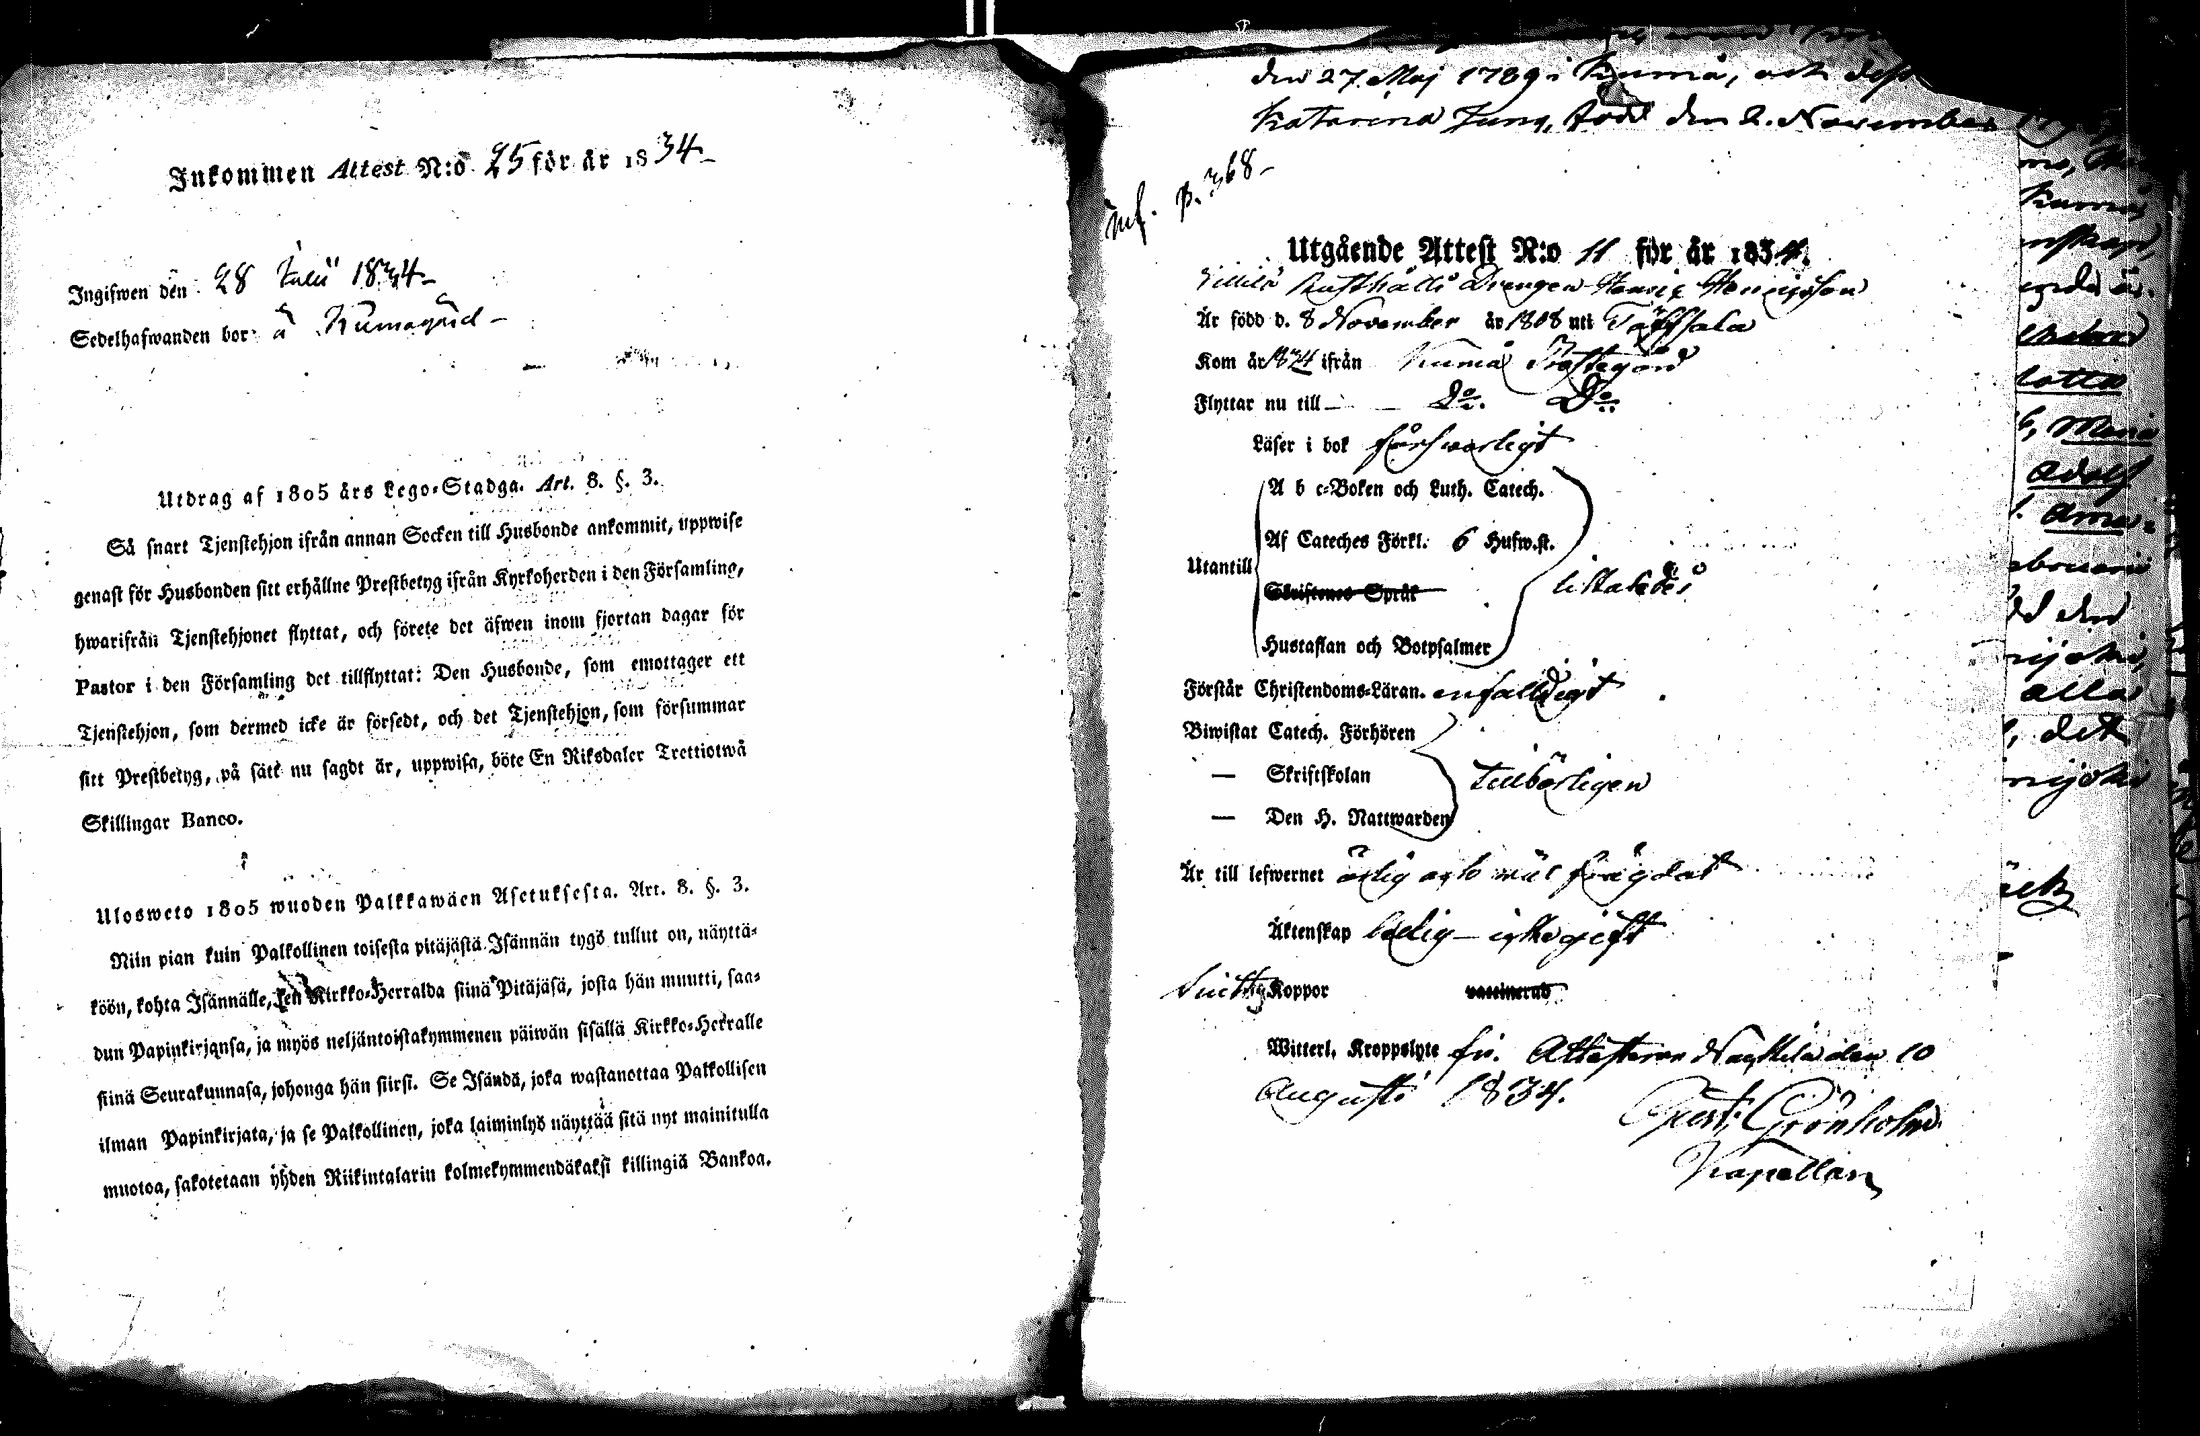 Inkommen Attest N:o 25 för år 1834
Ingifwen den 28 Julii 1834
Sedelhafwanden bor å Kumogård
Utdrag af 1805 års Lego-Stadga. Art. 8. §. 3.
Så snart Tjenstehjon ifrån annan Socken till Husbonde ankommit, uppwise
genast för Husbonden sitt erhållne Prestbetyg ifrån Kyrkoherden i den Församling,
hwarifrån Tjenstehjonet flyttat, och förete det äfwen inom fjortan dagar för
Pastor i den Församling det tillflyttat: Den Husbonde, som emottager ett
Tjenstehjon, som dermed icke är försedt, och det Tjenstehjon, som försummar
sitt Prestbetyg, på sätt nu sagdt är, uppwisa, böte En Riksdaler Trettiotwå
Skillingar Banco.
Ulosweto 1805 wuoden Palkkawäen Asetuksesta. Art. 8. §. 3.
Niin pian kuin Palkollinen toisesta pitäjästä Isännän tygö tullut on, näyttä-
köön, kohta Isännälle, sen Kirkko-Herralda siinä Pitäjäsä, josta hän muutti, saa-
dun Papinkirjansa, ja myös neljäntoistakymmenen päiwän sisällä Kirkko-Herralle
siinä Seurakunnasa, johonga hän siirsi. Se Isändä, joka wastanottaa Palkollisen
ilman Papinkirjata, ja se Palkollinen, joka laiminlyö näyttää sitä nyt mainitulla
muotoa, sakotetaan yhden Riikintalarin kolmekymmendäkaksi killingiä Bankoa.
den 27 Maj 1789 i Kumå, och dess
Katarina Jung, född den 2. November
Inf. p. 368
Utgående Attest N:o 11 för år 1834.
Rusthålls Drengen Henric Henricsson
Är född d. 8 November år 1808 uti Töfsala
Kom år 1834 ifrån Kumå Prostegård
Flyttar nu till Do. Do.
Läser i bok försvarligt
A b c-Boken och Luth. Catech.
Af Cateches Förkl. 6 Hufw.st.
Utantill
Skriftenes Språk
likaledes
Hustaflan och Botpsalmer
Förstår Christendoms-Läran. enfaldigt
Biwistat Catech. Förhören
— Skriftskolan tillbörligen
— Den H. Nattwarden
Är till lefwernet ärlig och wäl frägdat
Äktenskap ledig — icke gift
Koppor vaccinerad
Witterl. Kroppslyte fri. Attesterar Nakkila den 10
Augusti 1834.
Gust. Grönholm
Kapellan